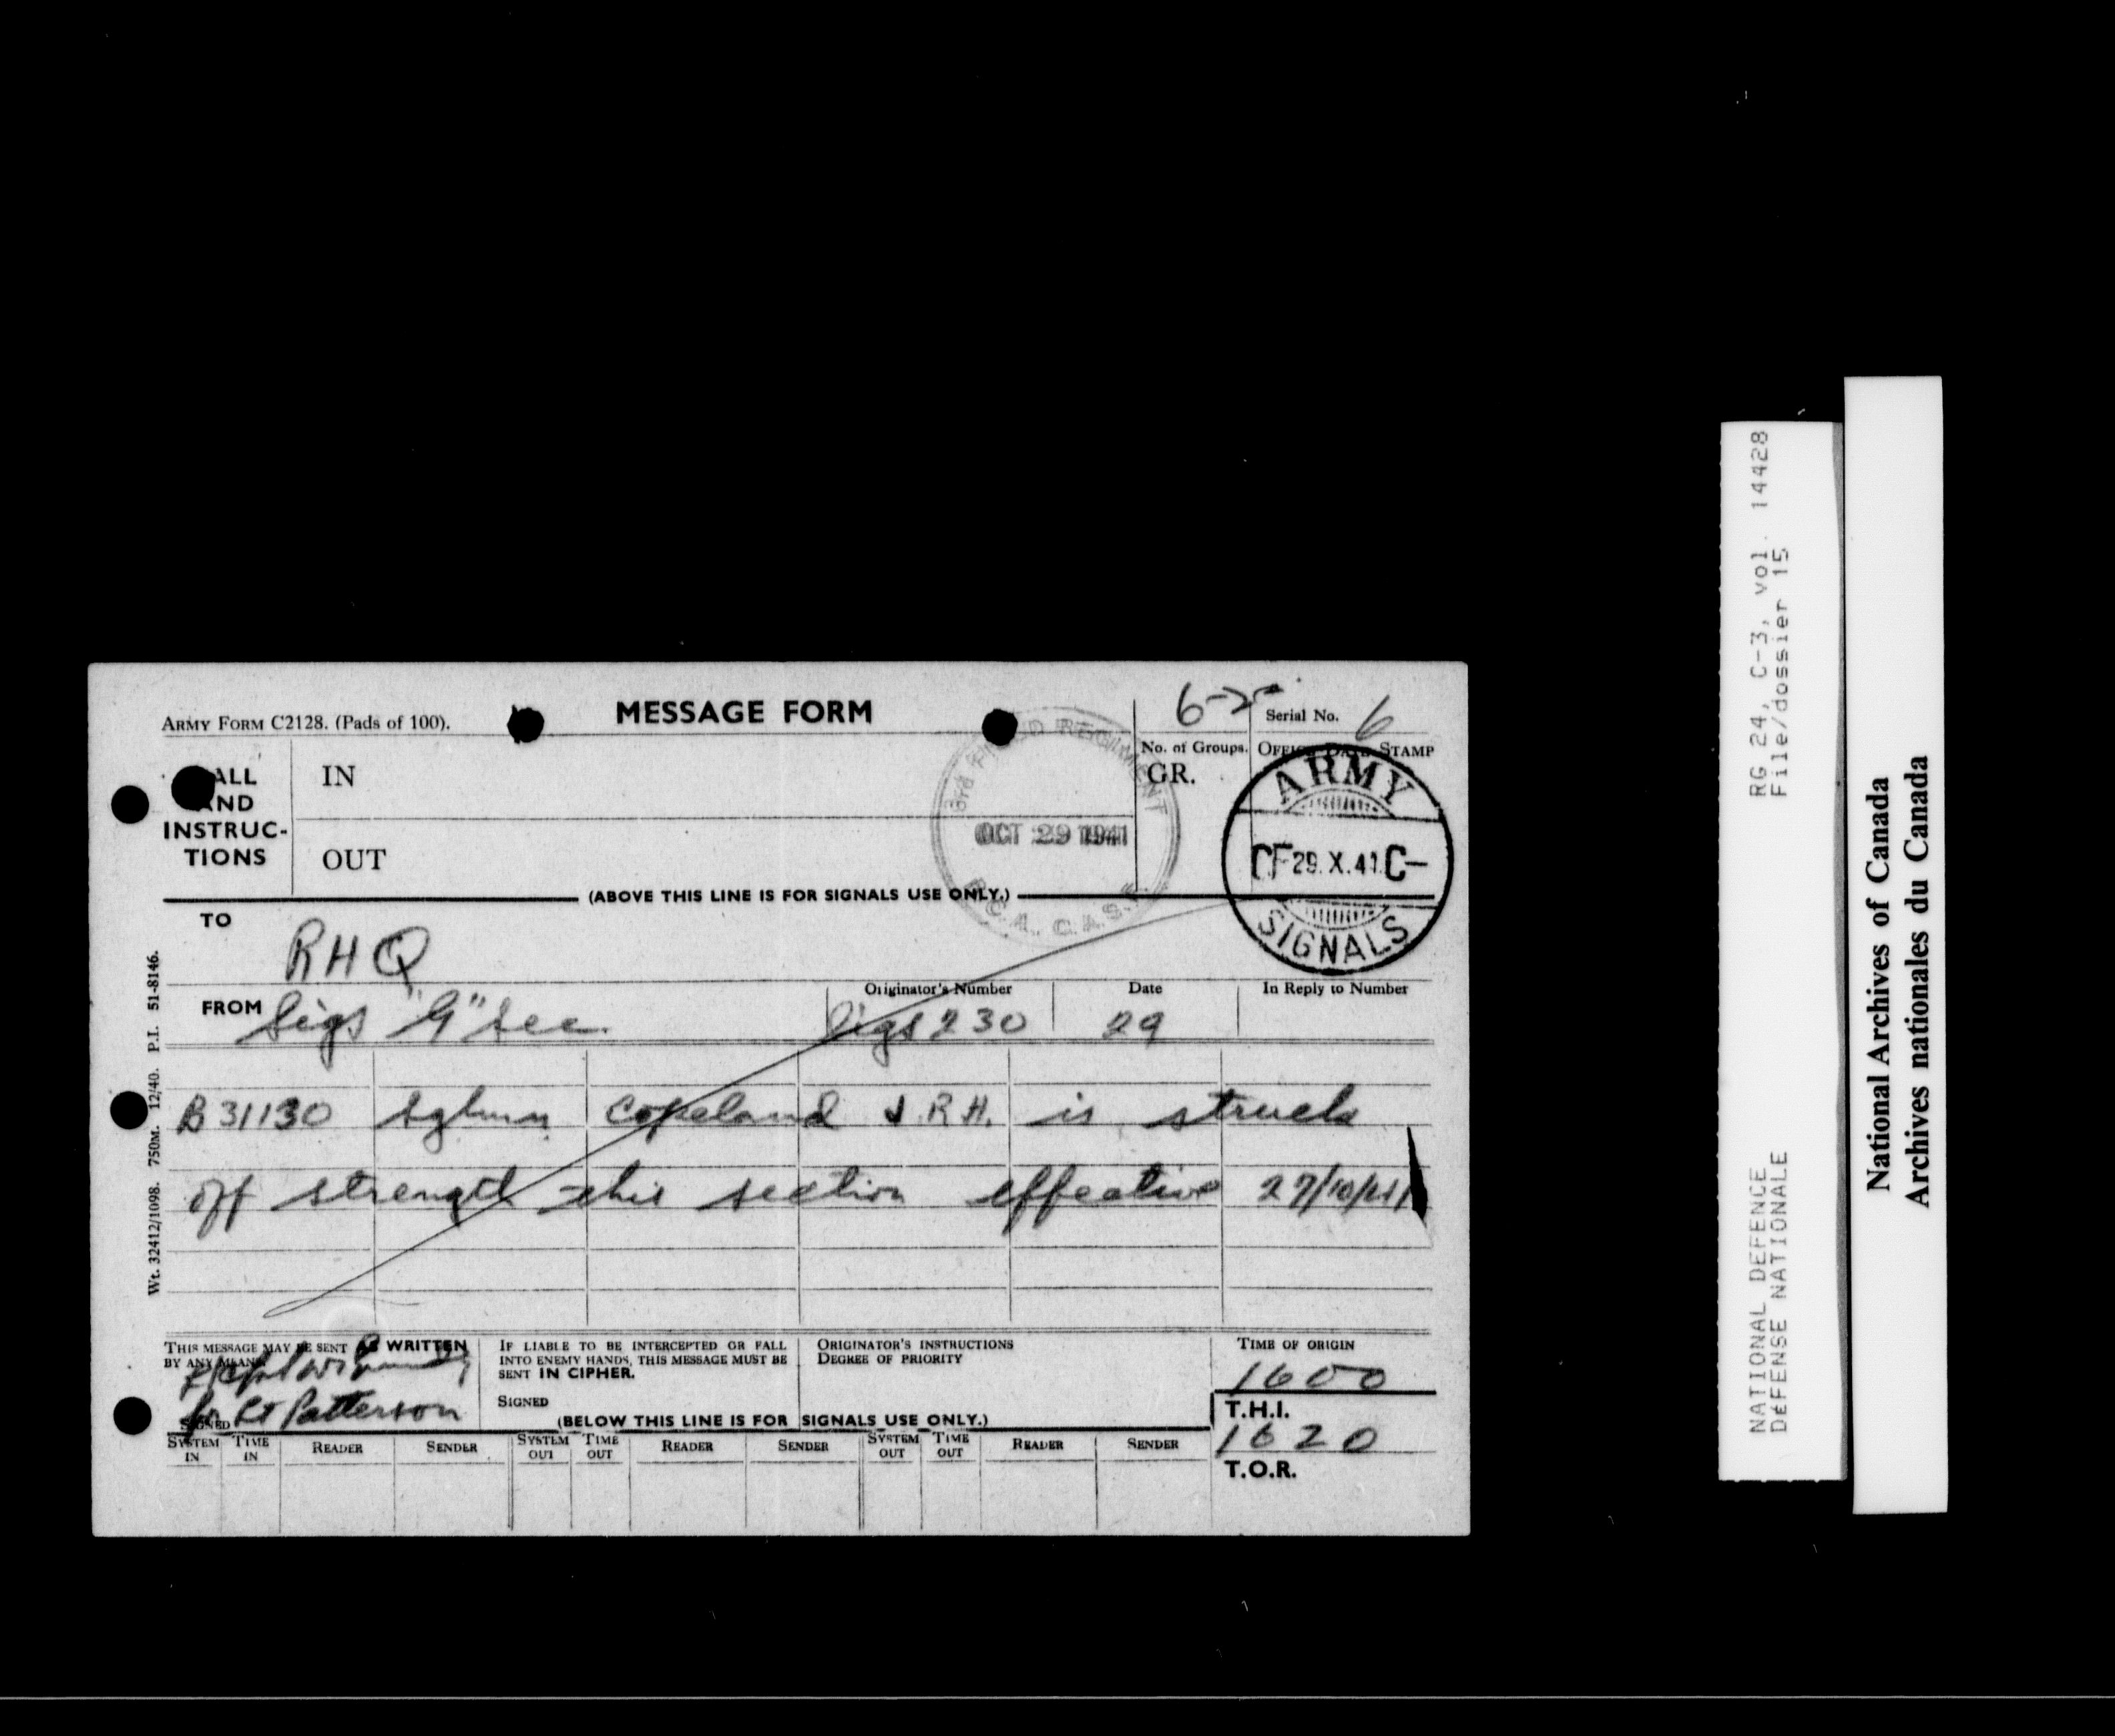 ARMY FORM C2128. (Pads of 100).
MESSAGE FORM
6-2
Serial No. 6
No. of Groups.
GR.
OFFICE DATE STAMP
ALL
AND
INSTRUC-
TIONS
IN
OUT
3rd FIELD REGIMENT
OCT 29 1941
R.C.A., C.A.S.F.
ARMY
CF 29.X.41. C-
SIGNALS
(ABOVE THIS LINE IS FOR SIGNALS USE ONLY.)
TO
RHQ
FROM Sigs "G" Sec.
Originator's Number
Sigs 230
Date
29
In Reply to Number
B 31130 Sglmn Copeland J.R.H. is struck
off strength this section effective 27/10/41
Wt. 32412/1098. 750M. 12/40. P.I. 51-8146.
THIS MESSAGE MAY BE SENT AS WRITTEN
BY ANY MEANS
for Lt Patterson
SIGNED
IF LIABLE TO BE INTERCEPTED OR FALL
INTO ENEMY HANDS, THIS MESSAGE MUST BE
SENT IN CIPHER.
SIGNED
ORIGINATOR'S INSTRUCTIONS
DEGREE OF PRIORITY
TIME OF ORIGIN
1600
T.H.I.
1620
T.O.R.
(BELOW THIS LINE IS FOR SIGNALS USE ONLY.)
SYSTEM IN TIME IN READER SENDER SYSTEM OUT TIME OUT READER SENDER SYSTEM OUT TIME OUT READER SENDER
NATIONAL DEFENCE RG 24, C-3, vol. 14428
DÉFENSE NATIONALE File/dossier 15
National Archives of Canada
Archives nationales du Canada